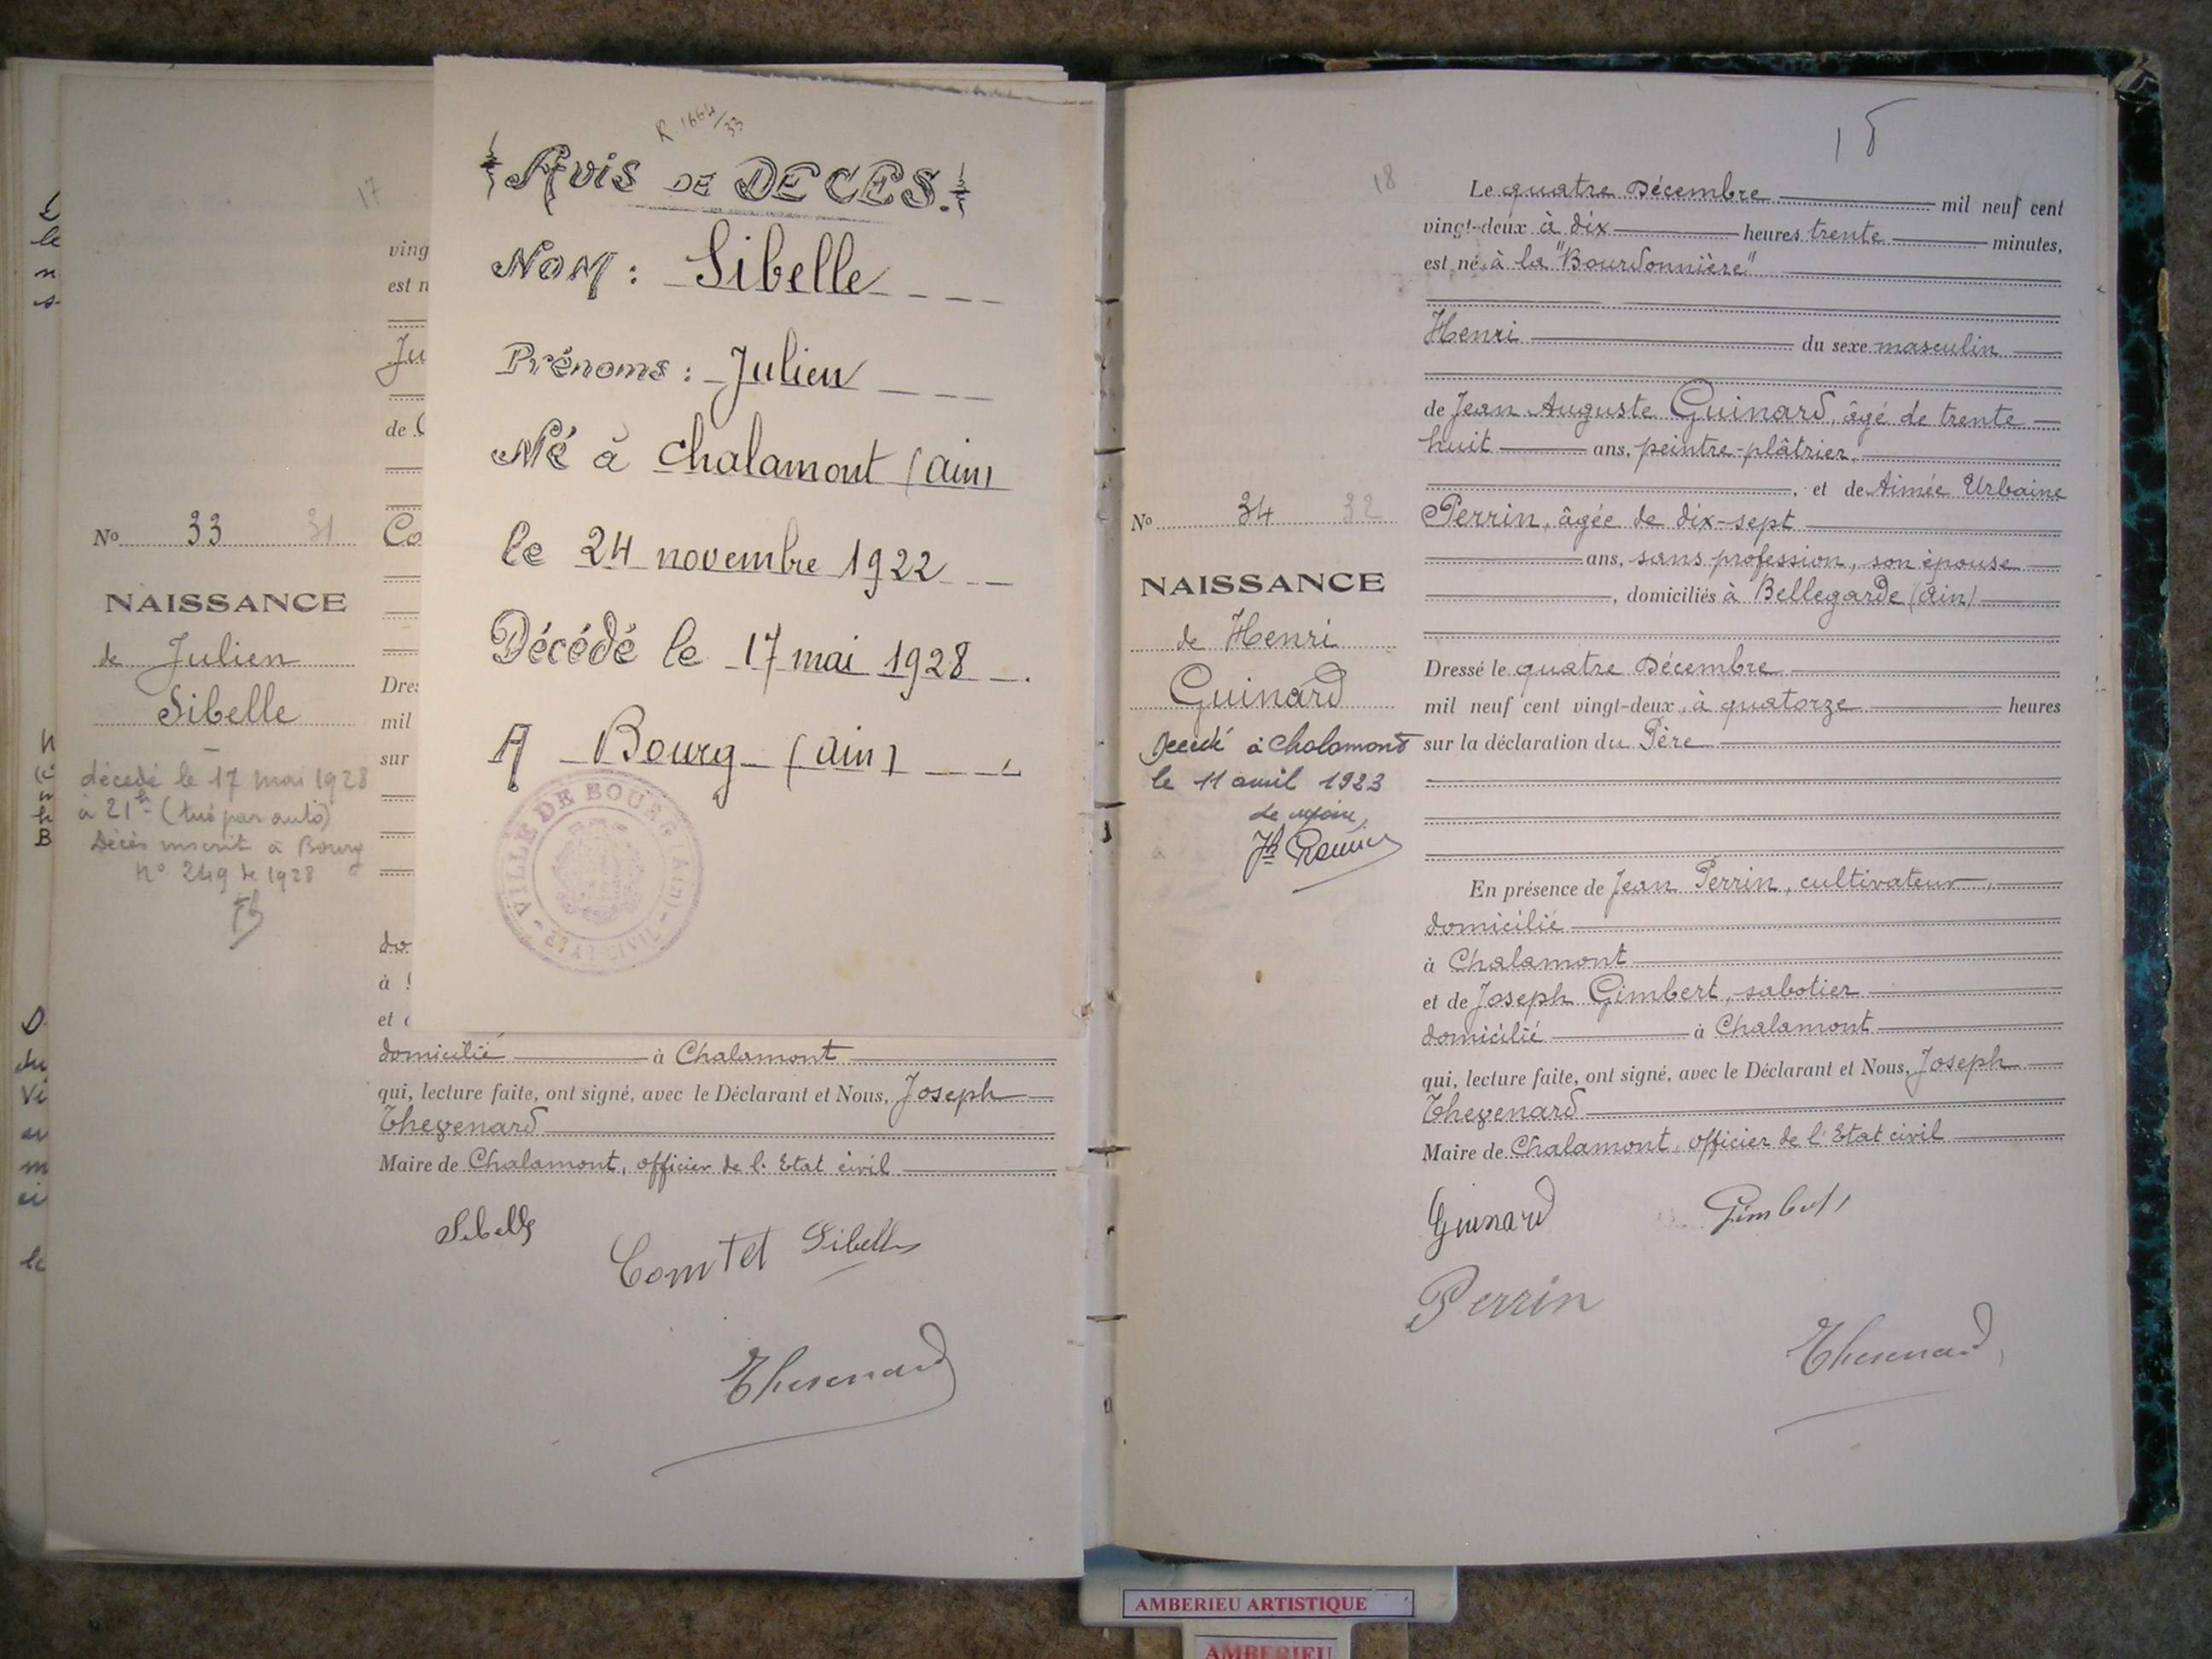 17
No 33 31
NAISSANCE
de Julien
Sibelle
décédé le 17 mai 1928
à 21h (tué par auto)
Décès inscrit à Bourg
n° 249 de 1928
ving
est n
Ju
de
Co
Dres
mil
sur
do
à
et
R 1664/33
Avis DE DECES.
NOM : Sibelle
Prénoms : Julien
Né à Chalamont (Ain)
le 24 novembre 1922
Décédé le 17 mai 1928.
A Bourg (Ain)
VILLE DE BOURG (AIN) - ETAT-CIVIL -
domicilié à Chalamont
qui, lecture faite, ont signé, avec le Déclarant et Nous, Joseph
Thevenard
Maire de Chalamont, officier de l'Etat civil
Sibelle
Comtet Sibelle
Thevenard
18
18
No 34 32
NAISSANCE
de Henri
Guinard
Décédé à Chalamont
le 11 avril 1923
Le Maire,
Le quatre Décembre mil neuf cent
vingt-deux à dix heures trente minutes,
est né, à la "Bourdonnière"
Henri du sexe masculin
de Jean Auguste Guinard, âgé de trente
huit ans, peintre-plâtrier,
, et de Aimée Urbaine
Perrin, âgée de dix-sept
ans, sans profession, son épouse
, domiciliés à Bellegarde (Ain)
Dressé le quatre Décembre
mil neuf cent vingt-deux, à quatorze heures
sur la déclaration du Père
En présence de Jean Perrin, cultivateur,
domicilié
à Chalamont
et de Joseph Gimbert, sabotier
domicilié à Chalamont
qui, lecture faite, ont signé, avec le Déclarant et Nous, Joseph
Thevenard
Maire de Chalamont, officier de l'Etat civil
Guinard Gimbert
Perrin
Thevenard
AMBERIEU ARTISTIQUE
AMBERIEU